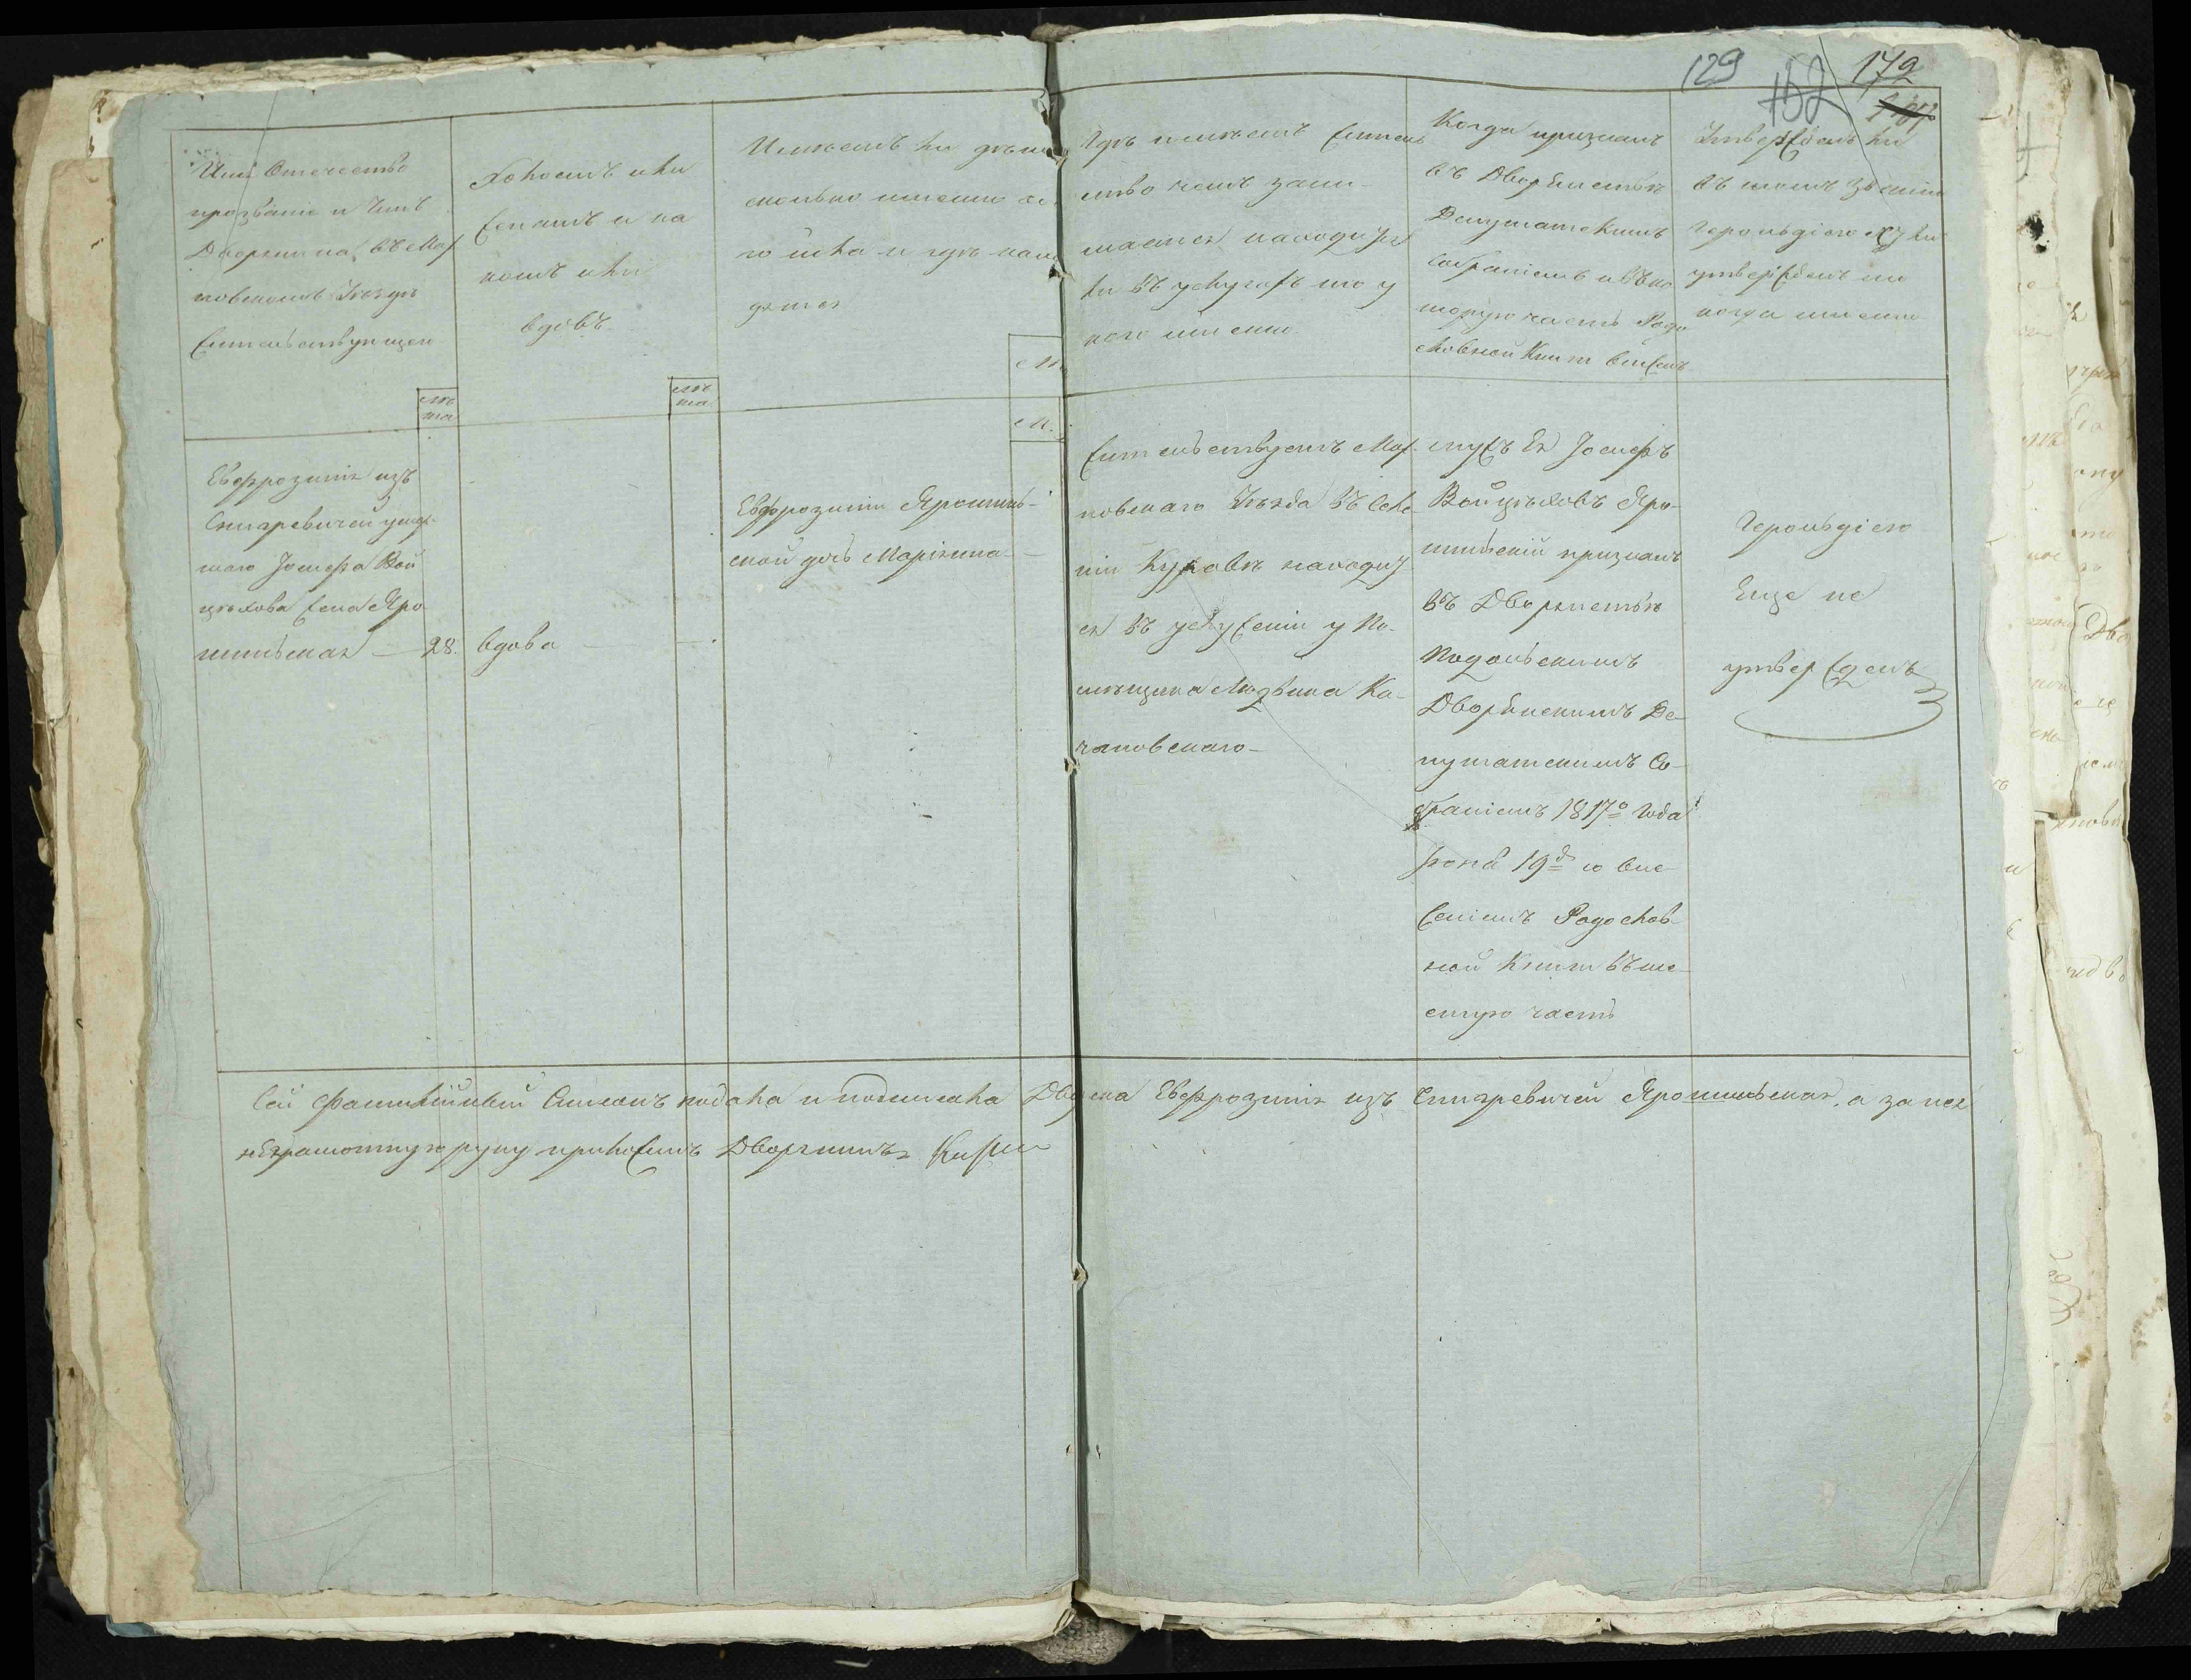 129 152 172
Имя Отечество
прозваніе и Чинъ
Дворянина, въ Мог.
повскомъ Уѣздѣ
Жительствующаго
лѣ
та
Холостъ или
женатъ и на
комъ или
вдовъ
лѣ
та
Имѣетъ ли дѣтей
сколько именно ка
го пола и гдѣ нахо
дятся
М.
М.
Гдѣ имѣетъ житель
ство чемъ зани-
мается находится
ли въ услугахъ то у
кого именно
Когда признанъ
въ Дворянствѣ
Депутатскимъ
Собраніемъ и въ ко
торую часть Родо
словной Книги внесенъ
Утвержденъ ли
въ томъ званіи
Герольдіею буде
утвержденъ то
когда именно
Евфрозинія изъ
Снигревичей умер-
шаго Іосифа Вой
цѣхова жена Яро
шинская — 28.
вдова
Евфрозиніи Ярошинь-
ской дочь Маріянна
Жительствуетъ Мог.
повскаго Уѣзда въ Селе
ніи Курахъ находит
ся въ услуженіи у По-
мѣщика Людвика Ка-
чановскаго
мужъ Ея Іосифъ
Войцѣховъ Яро-
шинскій признанъ
въ Дворянствѣ
Подольскимъ
Дворянскимъ Де-
путатскимъ Со-
браніемъ 1817го Года
Іюня 19д со вне-
сеніемъ Родослов-
ной Книги въ ше-
стую часть
Герольдіею
Еще не
утвержденъ
Сей Фамилійный Списокъ подала и подписала Дворянка Евфрозинія изъ Снигревичей Ярошинская, а за нея
неграмотную руку приложилъ Дворянинъ